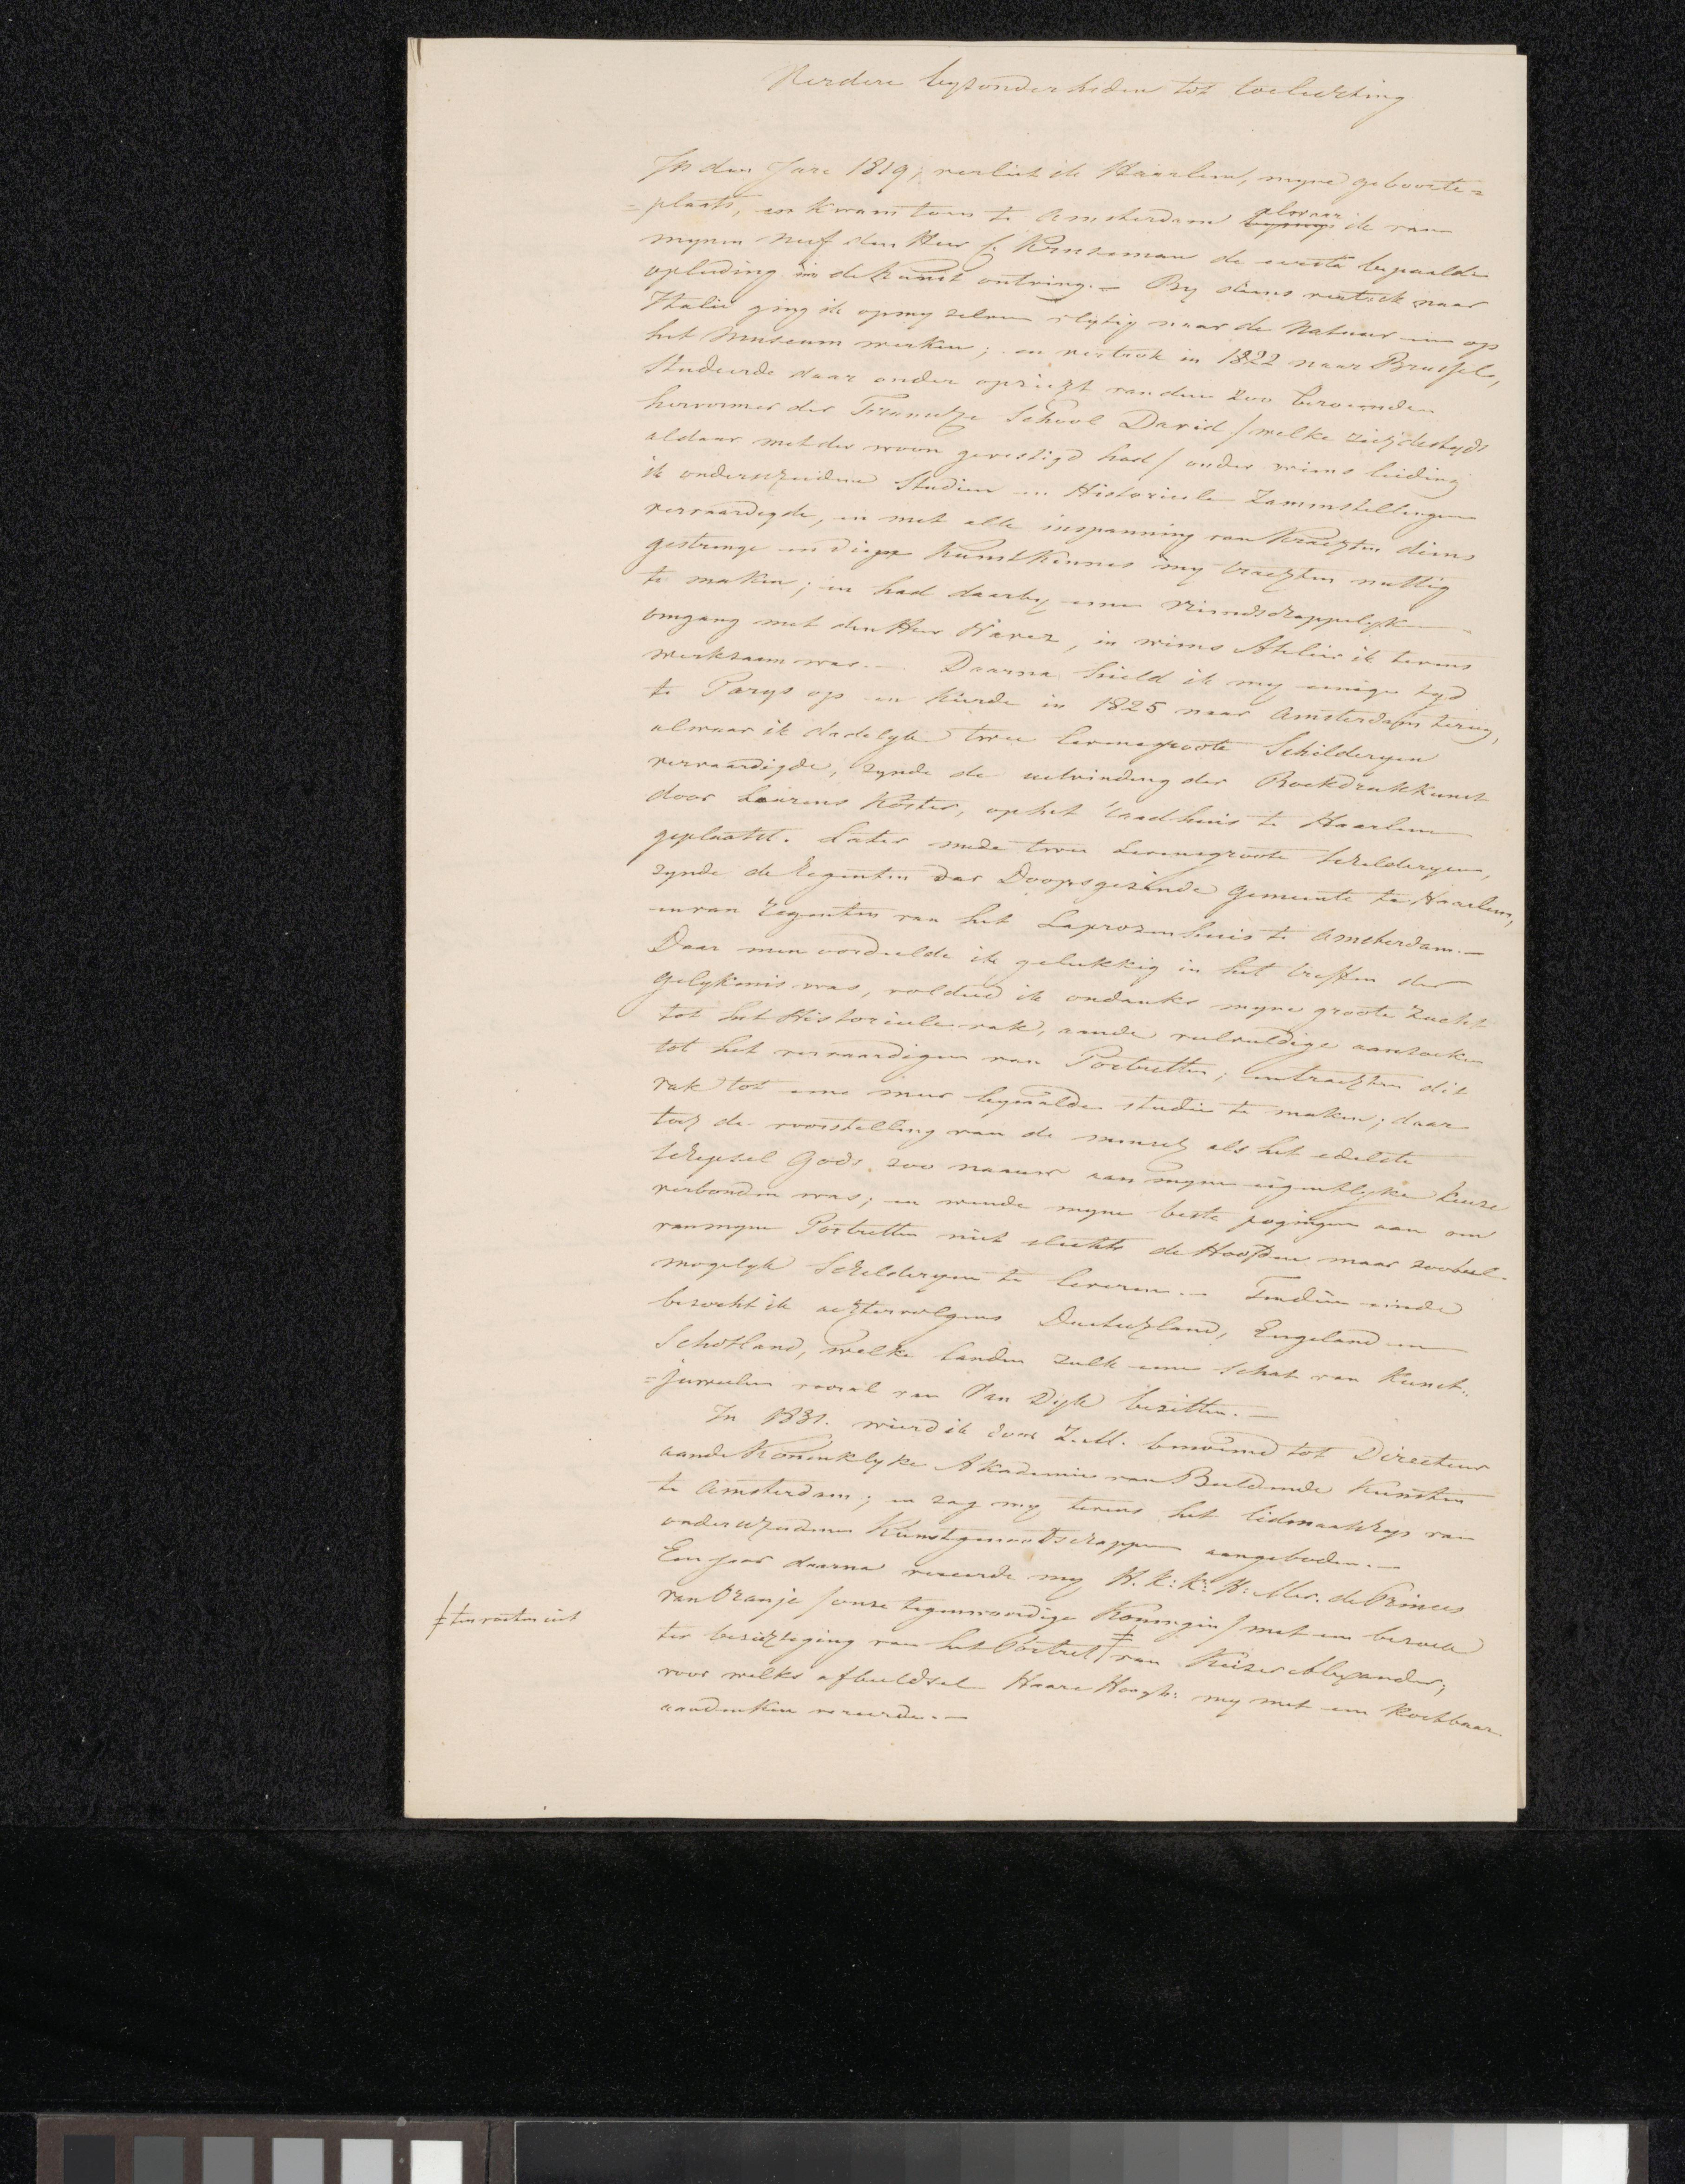 Verdere byzonderheden tot toelichting
In den Jare 1819, verliet ik Haarlem, myne geboorte=
=plaats, en kwam toen te Amsterdam alwaar ik van
mynen Neef den Heer C. Kruseman de eerste bepaalde
opleiding in de Kunst ontving. – By diens vertrek naar
Italie ging ik op my zelven vlytig naar de Natuur en op
het Museum werken; en vertrok in 1822 naar Brussel,
studeerde daar onder opzicht van den zoo beroemden
hervormer der Fransche School David / welke zich destyds
aldaar met der woon gevestigd had / onder wiens leiding
ik onderscheidene Studien en Historieele Zamenstellingen
vervaardigde, en met alle inspanning van krachten diens
gestrenge en diepe kunstkennis my trachten nuttig
te maken; en had daarby eenen vriendschappelyken
omgang met den Heer Navez, in wiens Atelier ik tevens
werkzaam was. – Daarna hield ik my eenige tyd
te Parys op en keerde in 1825 naar Amsterdam terug,
alwaar ik dadelyk twee levensgroote Schilderyen
vervaardigde, zynde de uitvinding der Boekdrukkunst
door Laurens Koster, op het raadhuis te Haarlem
geplaatst. Later mede twee Levensgroote schilderyen,
zynde de Regenten der Doopsgezinde Gemeente te Haarlem,
en van Regenten van het Leprozenhuis te Amsterdam. –
Daar men oordeelde ik gelukkig in het treffen der
gelykenis was, voldeed ik ondanks myne groote zucht
tot het Historieele vak, aan de veelvuldige aanzoeken
tot het vervaardigen van Portretten; en trachten dit
vak tot eene meer bepaalde studie te maken; daar
toch de voorstelling van de mensch als het edelste
schepsel Gods zoo naauw aan myne eigentlyke keuze
verbonden was; en wende myne beste pogingen aan om
van myne Portretten niet slechts de Hoofden maar zooveel
mogelyk Schilderyen te leveren. – Ten dien einde
bezocht ik achtervolgens Duitschland, Engeland en
Schotland, welke landen zulk eenen schat van Kunst=
=juweelen vooral van Van Dyk bezitten. –
In 1831. wierd ik door Z.M. benoemd tot Directeur
aan de Koninklyke Akademie van Beeldende Kunsten
te Amsterdam; en zag my tevens het lidmaatschap van
onderscheidene Kunstgenootschappen aangeboden. –
Een jaar daarna vereerde my H. K: K: H: Mev. de Princes
van Oranje / onze tegenwoordige Koningin / met een bezoek
ter bezichtiging van het Portret ǂ van Keizer Alexander,
voor welks afbeeldsel Haare Hoogh: my met een kostbaar
aandenken vereerde. –
ǂ ten voeten uit